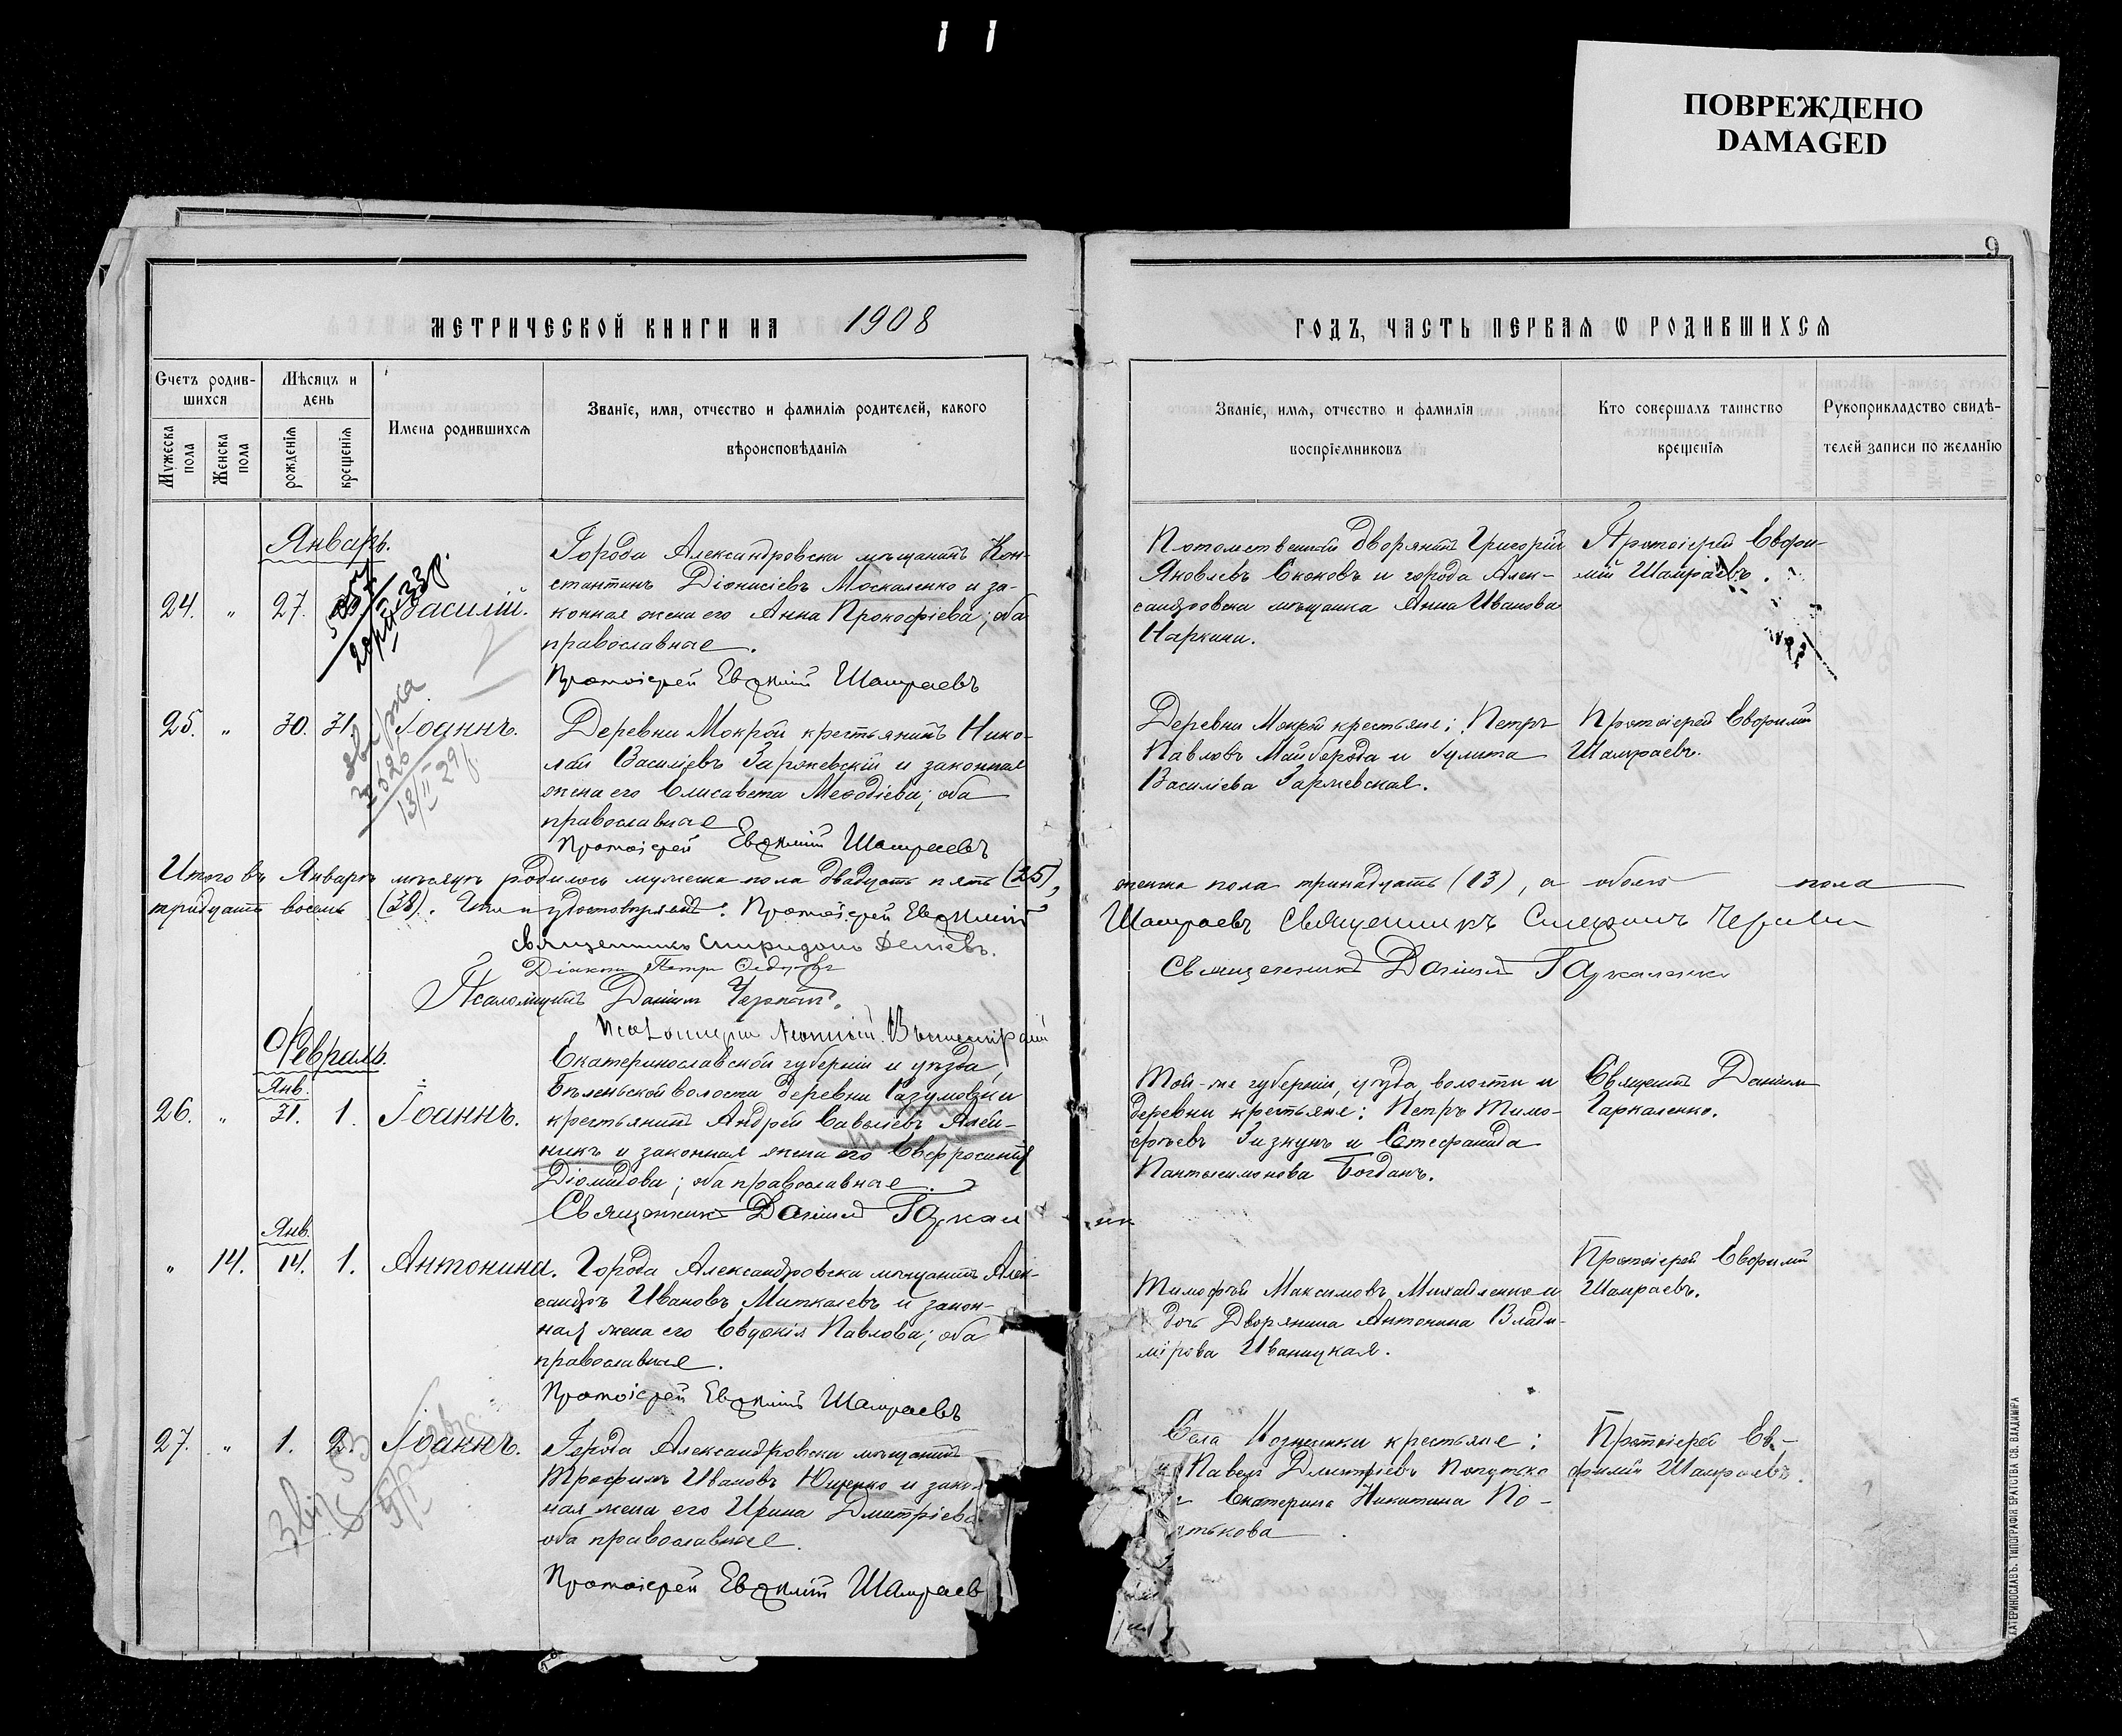 ПОВРЕЖДЕНО
DAMAGED
9
МЕТРИЧЕСКОЙ КНИГИ НА 1908
ГОДЪ, ЧАСТЬ ПЕРВАЯ Ѡ РОДИВШИХСЯ
Счетъ родив-
шихся
Мужеска пола
Женска пола
Мѣсяцъ и
день
рожденія
крещенія
Имена родившихся
Званіе, имя, отчество и фамилія родителей, какого
вѣроисповѣданія
Званіе, имя, отчество и фамилія
воспріемниковъ
Кто совершалъ таинство
крещенія
Рукоприкладство свидѣ-
телей записи по желанію
Январь.
24. " 27. Василій.
Города Александровска мѣщанинъ Кон-
стантинъ Діонисіевъ Москаленко и за-
конная жена его Анна Прокофіева; оба
православные.
Протоіерей Евѳимій Шамраевъ
Потомственный дворянинъ Григорій
Яковлевъ Скоковъ и города Алек-
сандровска мѣщанка Анна Иванова
Протоіерей Евфи-
мій Шамраевъ.
25. " 30. 31. Іоаннъ.
Деревни Мокрой крестьянинъ Нико-
лай Васильевъ Заржевскій и законная
жена его Елисавета Меѳодіева; оба
православные
Протоіерей Евѳимій Шамраевъ
Деревни Мокрой крестьяне: Петръ
Павловъ Майборода и Іулита
Васильева Заржевская.
Протоіерей Евфимій
Шамраевъ.
13/II 29
Итого въ Январѣ мѣсяцѣ родилось мужеска пола двадцать пять (25),
женска пола тринадцать (13), а обоего пола
тридцать восемь (38). Протоіерей Евѳимій
Шамраевъ Священникъ
Священникъ Спиридонъ
Діаконъ Петръ
Священникъ Даніилъ Гаркаленко
Псаломщикъ Даніилъ
Псаломщикъ
Февраль.
Янв.
26. " 31. 1. Іоаннъ.
Екатеринославской губерніи и уѣзда,
Бѣленьской волости деревни Разумовки
крестьянинъ Андрей Савельевъ Алей-
никъ и законная жена его Евфросинія
Діомидова; оба православные.
Священникъ Даніилъ Гаркаленк
Той-же губерніи, уѣзда, волости и
деревни крестьяне: Петръ Тимо-
феевъ и Стефанида
Пантелимонова Богданъ.
Священ. Даніилъ
Гаркаленко.
Янв.
" 14. 14. 1. Антонина.
Города Александровска мѣщанинъ Алек-
сандръ Ивановъ Миткалевъ и закон-
ная жена его Евдокія Павлова; оба
православные.
Протоіерей Евѳимій Шамраевъ
Тимофей Максимовъ Михайленко и
дочь Дворянина Антонина Влади-
мірова Иваницкая.
Протоіерей Евфимій
Шамраевъ.
27. " 1. 2. Іоаннъ.
Города Александровска мѣщанинъ
Трофимъ Ивановъ Ющенко и закон
ная жена его Ирина Дмитріева
оба православные.
Протоіерей Евѳимій Шамраев
Села Вознесенки крестьяне:
Павелъ Дмитріевъ
Екатерина Никитина По-
тькова
Протоіерей Ев-
фимій Шамраевъ.
ЕКАТЕРИНОСЛАВЪ. ТИПОГРАФІЯ БРАТСТВА СВ. ВЛАДИМІРА